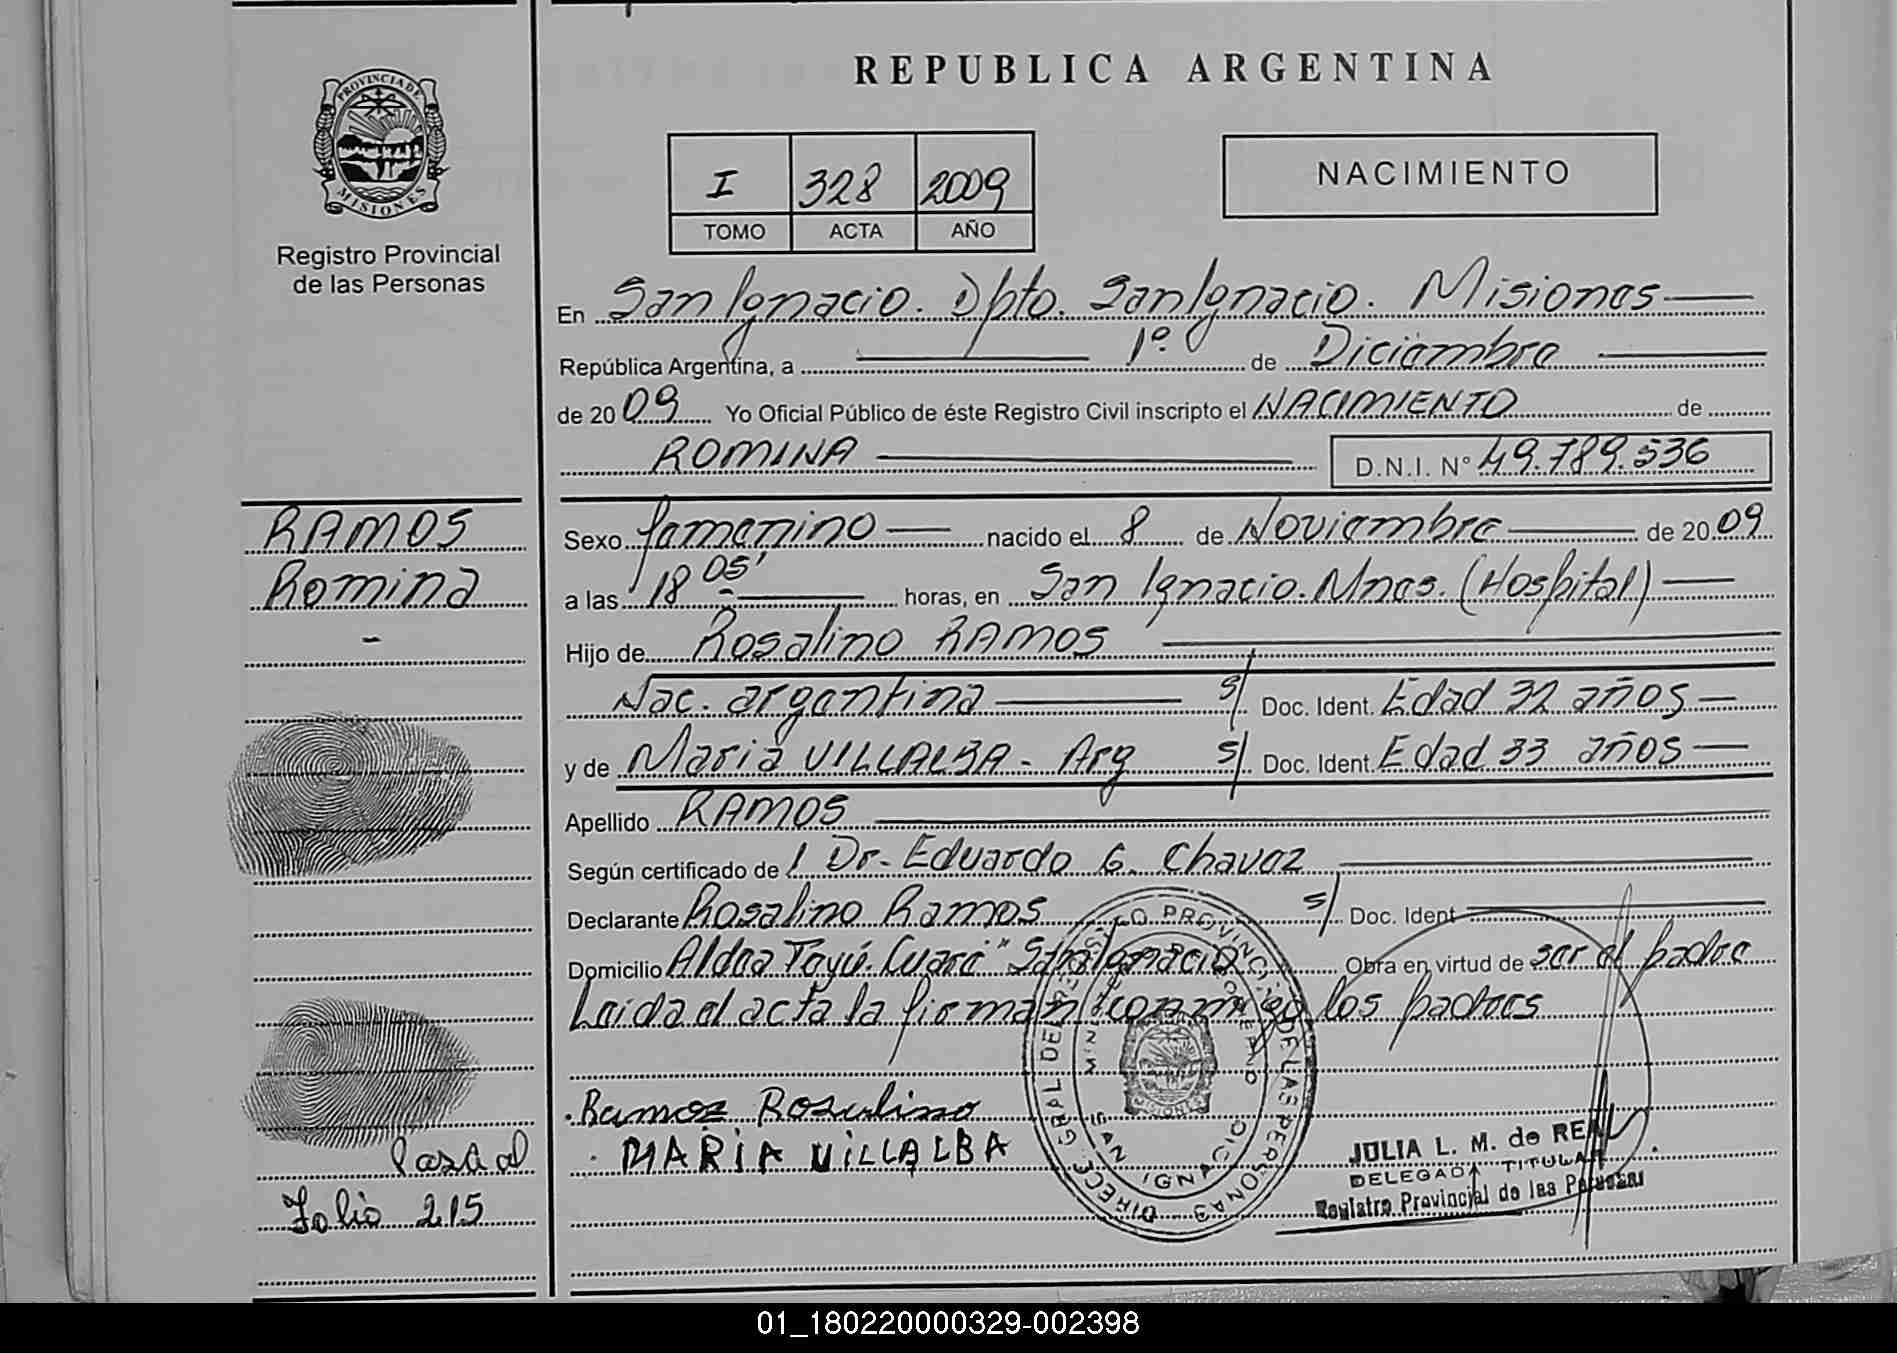 REPUBLICA ARGENTINA
PROVINCIA DE MISIONES
Registro Provincial
de las Personas
I 328 2009
TOMO ACTA AÑO
NACIMIENTO
En San Ignacio. Dpto. San Ignacio. Misiones
República Argentina, a 1º de Diciembre
de 2009 Yo Oficial Público de éste Registro Civil inscripto el NACIMIENTO de
ROMINA D.N.I. Nº 49.789.536
RAMOS
Romina
-
Sexo femenino nacido el 8 de Noviembre de 2009
a las 18 05' horas, en San Ignacio. Mnes. (Hospital)
Hijo de Rosalino RAMOS
Nac. argentina s/ Doc. Ident. Edad 32 años
y de Maria VILLALBA - Arg s/ Doc. Ident. Edad 33 años
Apellido RAMOS
Según certificado de / Dr. Eduardo G. Chavez
Declarante Rosalino Ramos s/ Doc. Ident
Domicilio Aldea "San Ignacio Obra en virtud de ser el padre
Leida el acta la firman conmigo los padres
Ramos Rosalino
MARIA VILLALBA
Pasa al
Folio 215
DIREC. GRAL DEL REGISTRO PROVINCIAL DE LAS PERSONAS
SAN IGNACIO
MISIONES
JULIA L. M. de REAL
DELEGADA TITULAR
Registro Provincial de las Personas
01_180220000329-002398